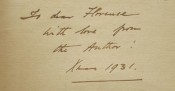 To dear Florence
with love from
the Author!
Xmas 1931.